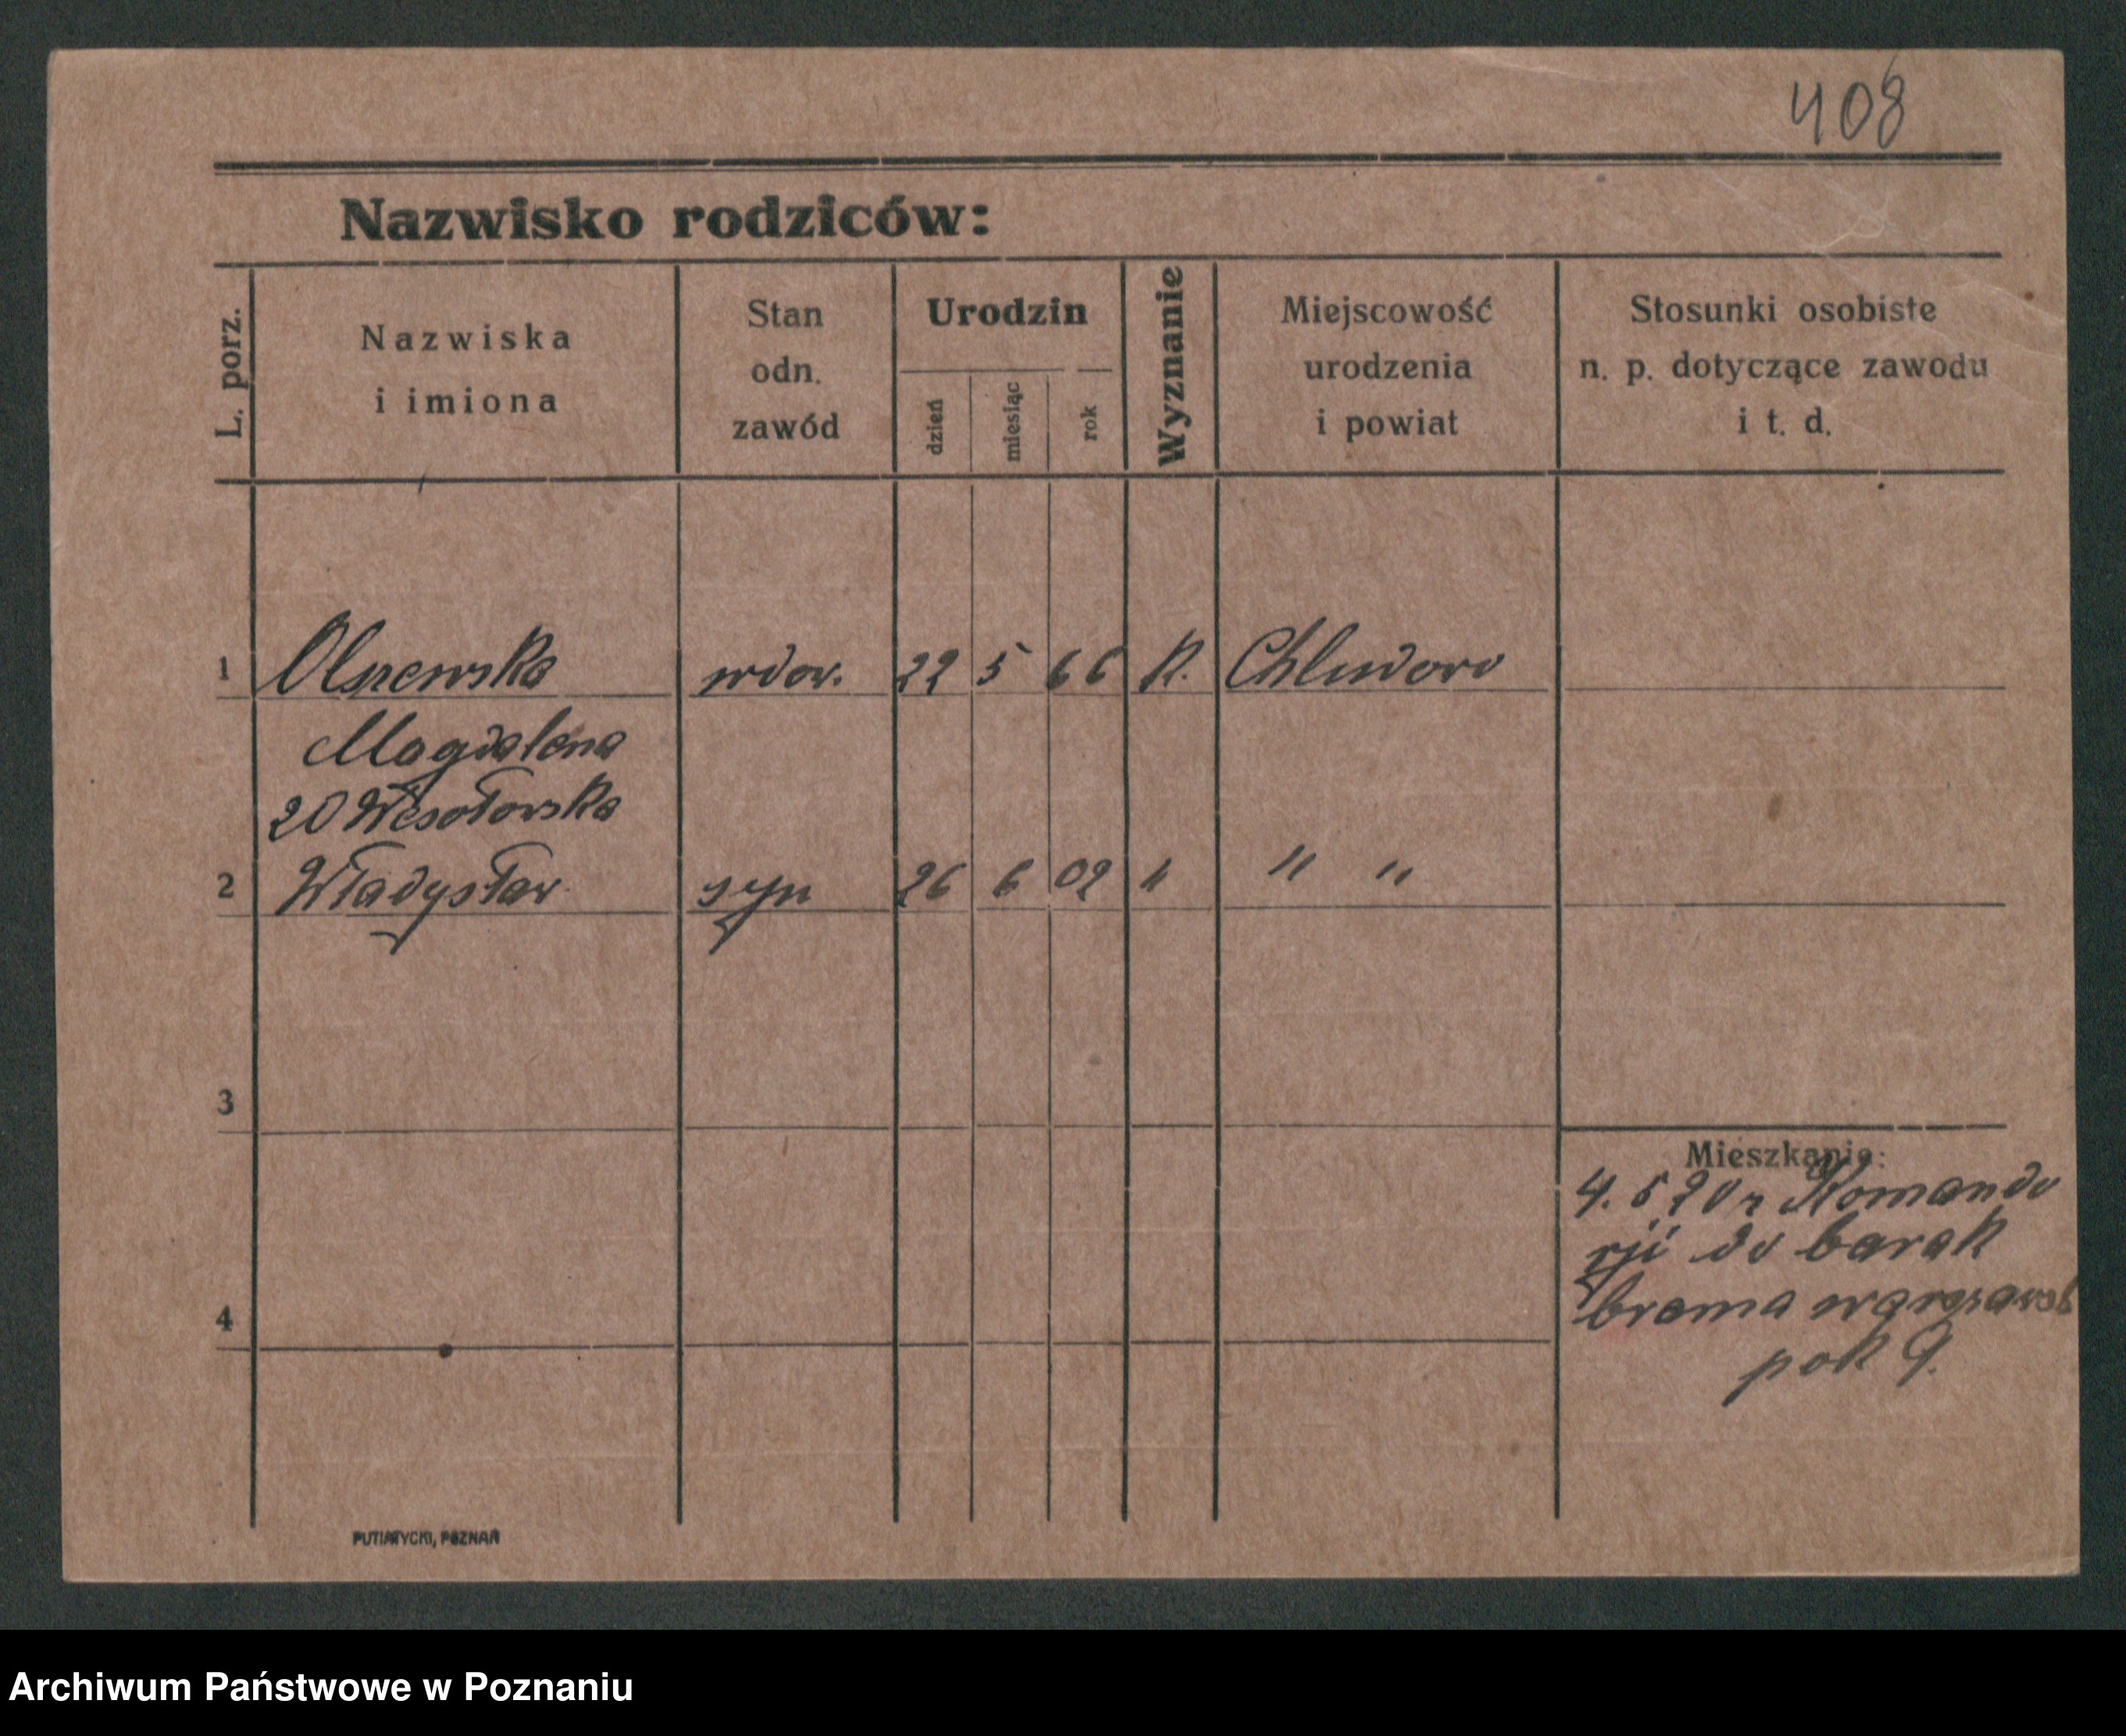 408
Nazwisko rodziców:
L. porz.
Nazwiska
i imiona
Stan
odn.
zawód
Urodzin
dzień
miesiąc
rok
Wyznanie
Miejscowość
urodzenia
i powiat
Stosunki osobiste
n. p. dotyczące zawodu
i t. d.
1 Olszewska wdow. 22 5 66 K. Chludowo
Magdalena
20 Wesołowska
2 Władysław syn 26 6 02 " " "
3
Mieszkanie:
4. 5 20 r Komando
rji do barak
4
brama
pok 9.
PUTIATYCKI, POZNAŃ
Archiwum Państwowe w Poznaniu